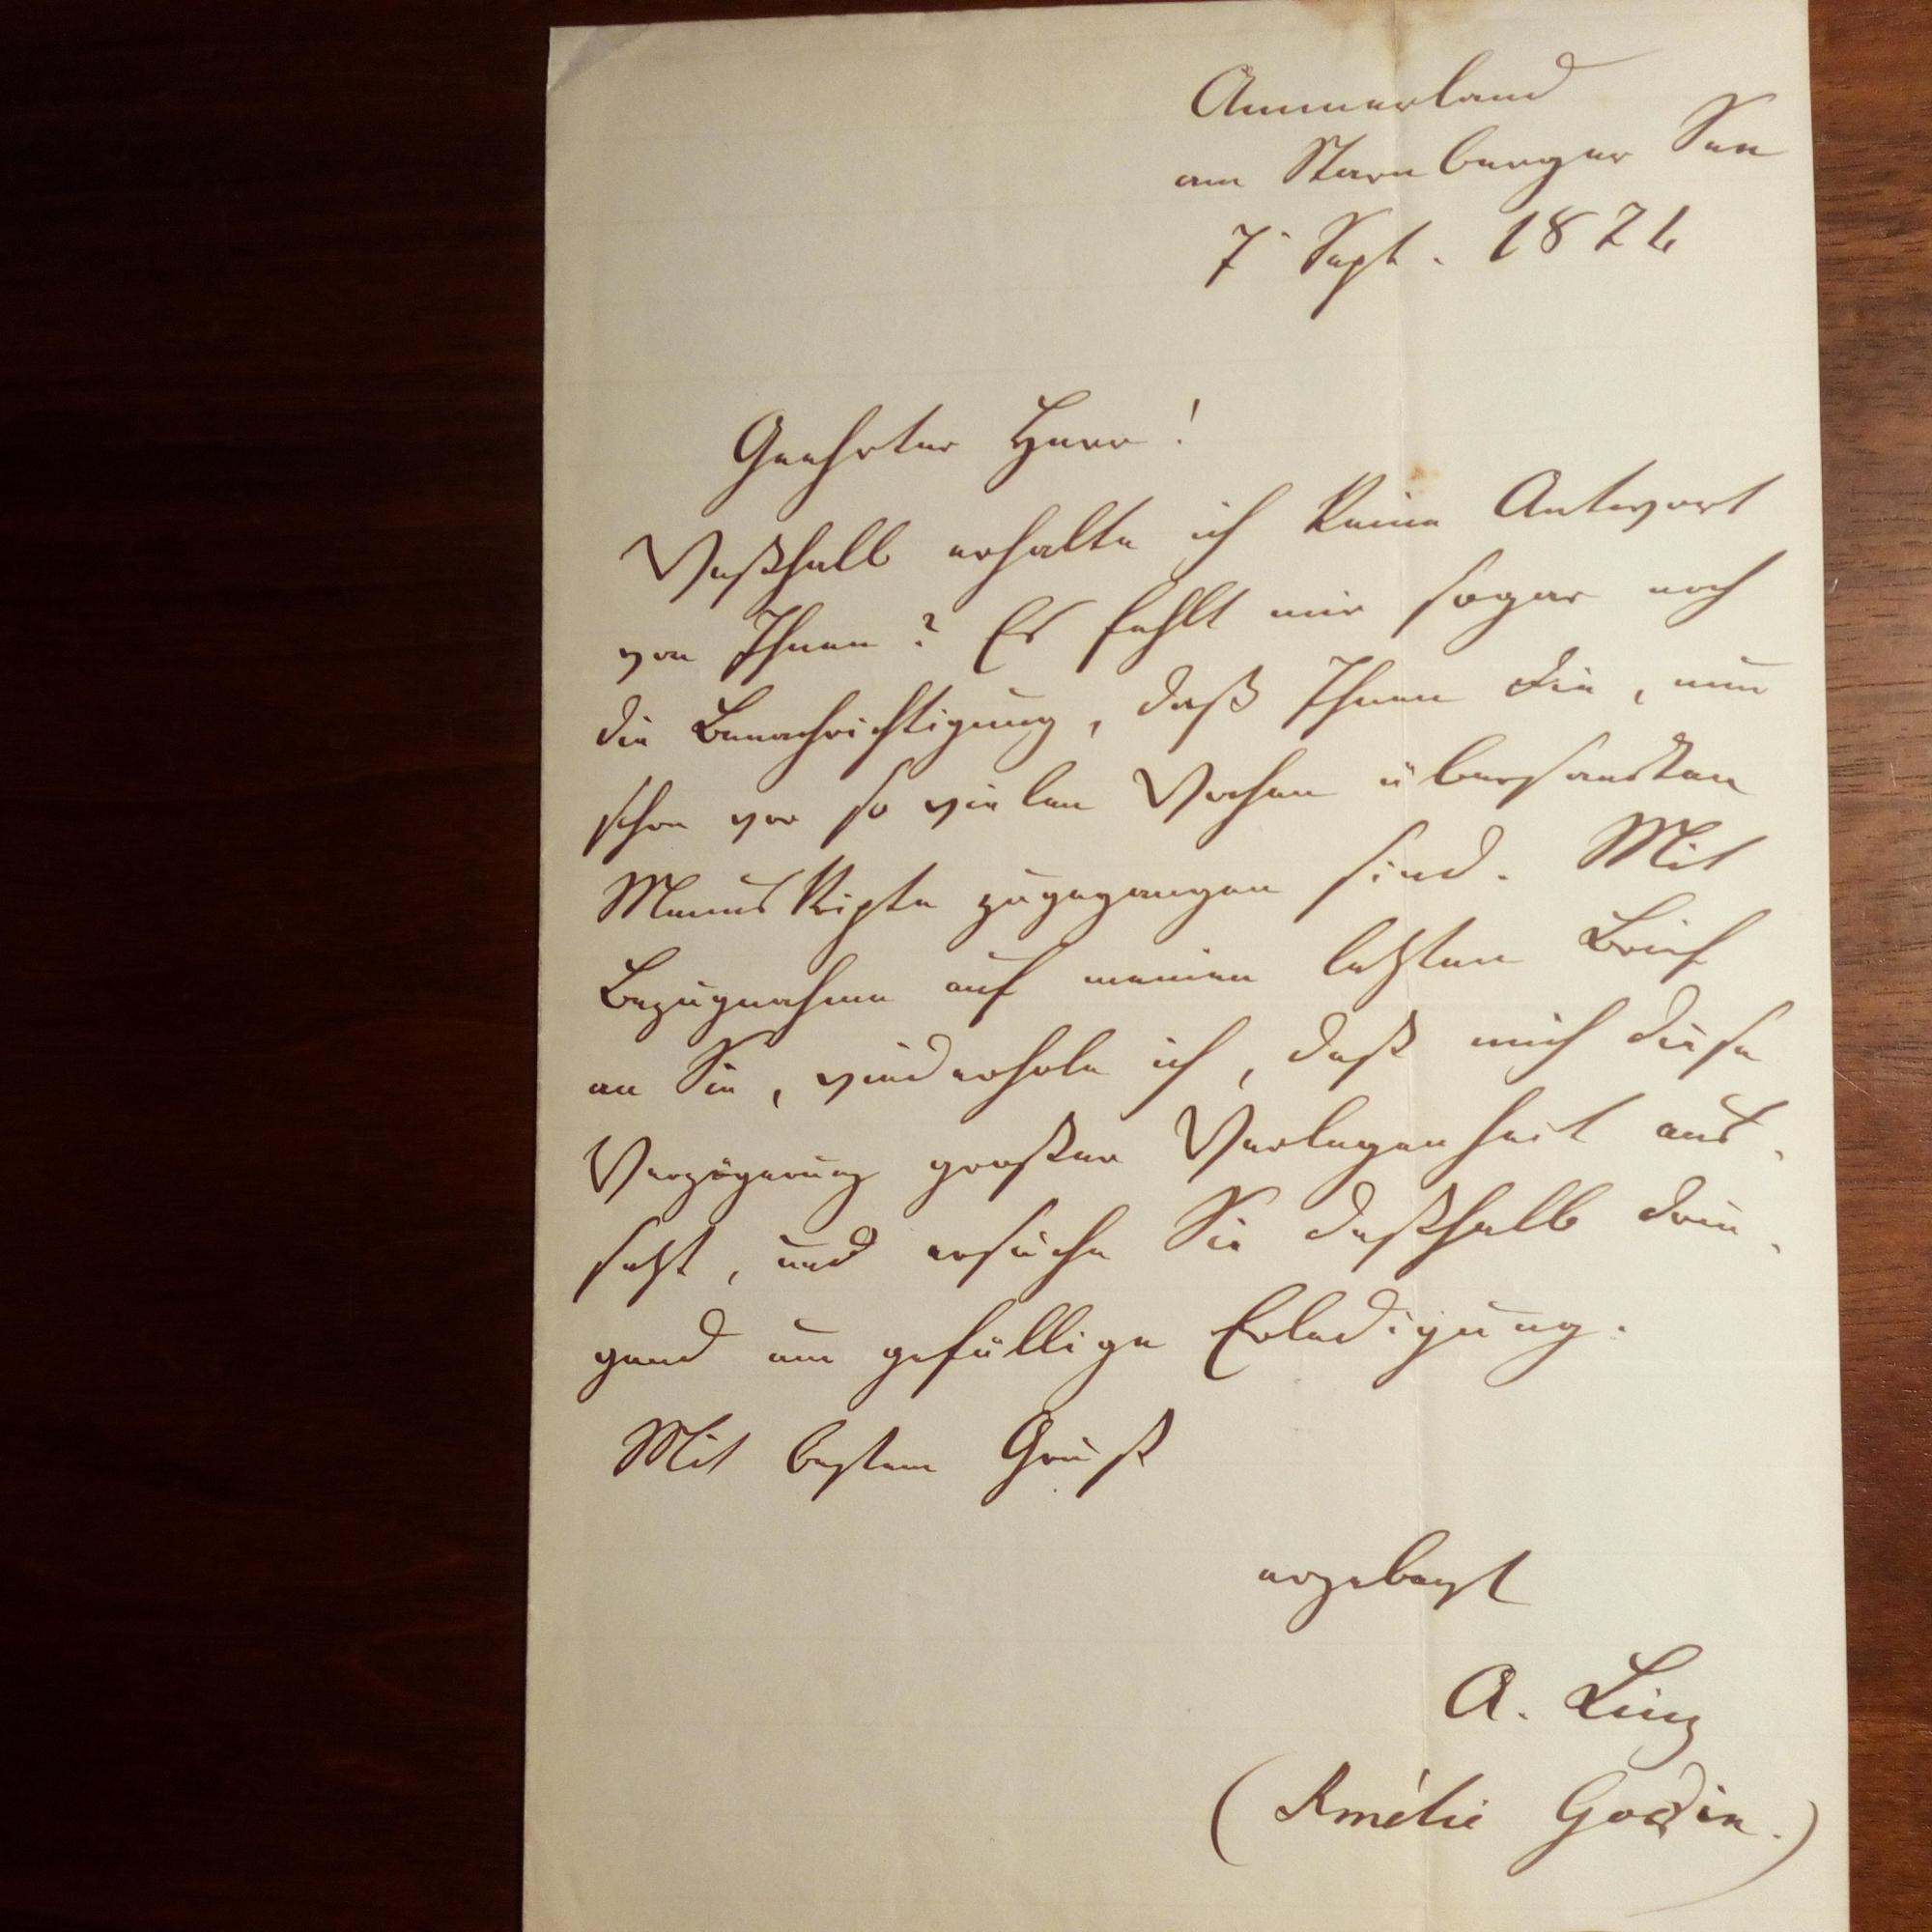 Ammerland
am Starnberger See
7. Sept. 1874
Geehrter Herr!
Weßhalb erhalte ich keine Antwort
von Ihnen? Es fehlt mir sogar noch
die Benachrichtigung, daß Ihnen die, nun
schon vor so vielen Wochen übersandten
Manuskripte zugegangen sind. Mit
Bezugnahme auf meinen letzten Brief
an Sie, wiederhole ich, daß mich diese
Verzögerung großer Verlegenheit aus-
setzt, und ersuche Sie deßhalb drin-
gend um gefällige Erledigung.
Mit bestem Gruß
ergebenst
A. Linz
(Amélie Godin.)